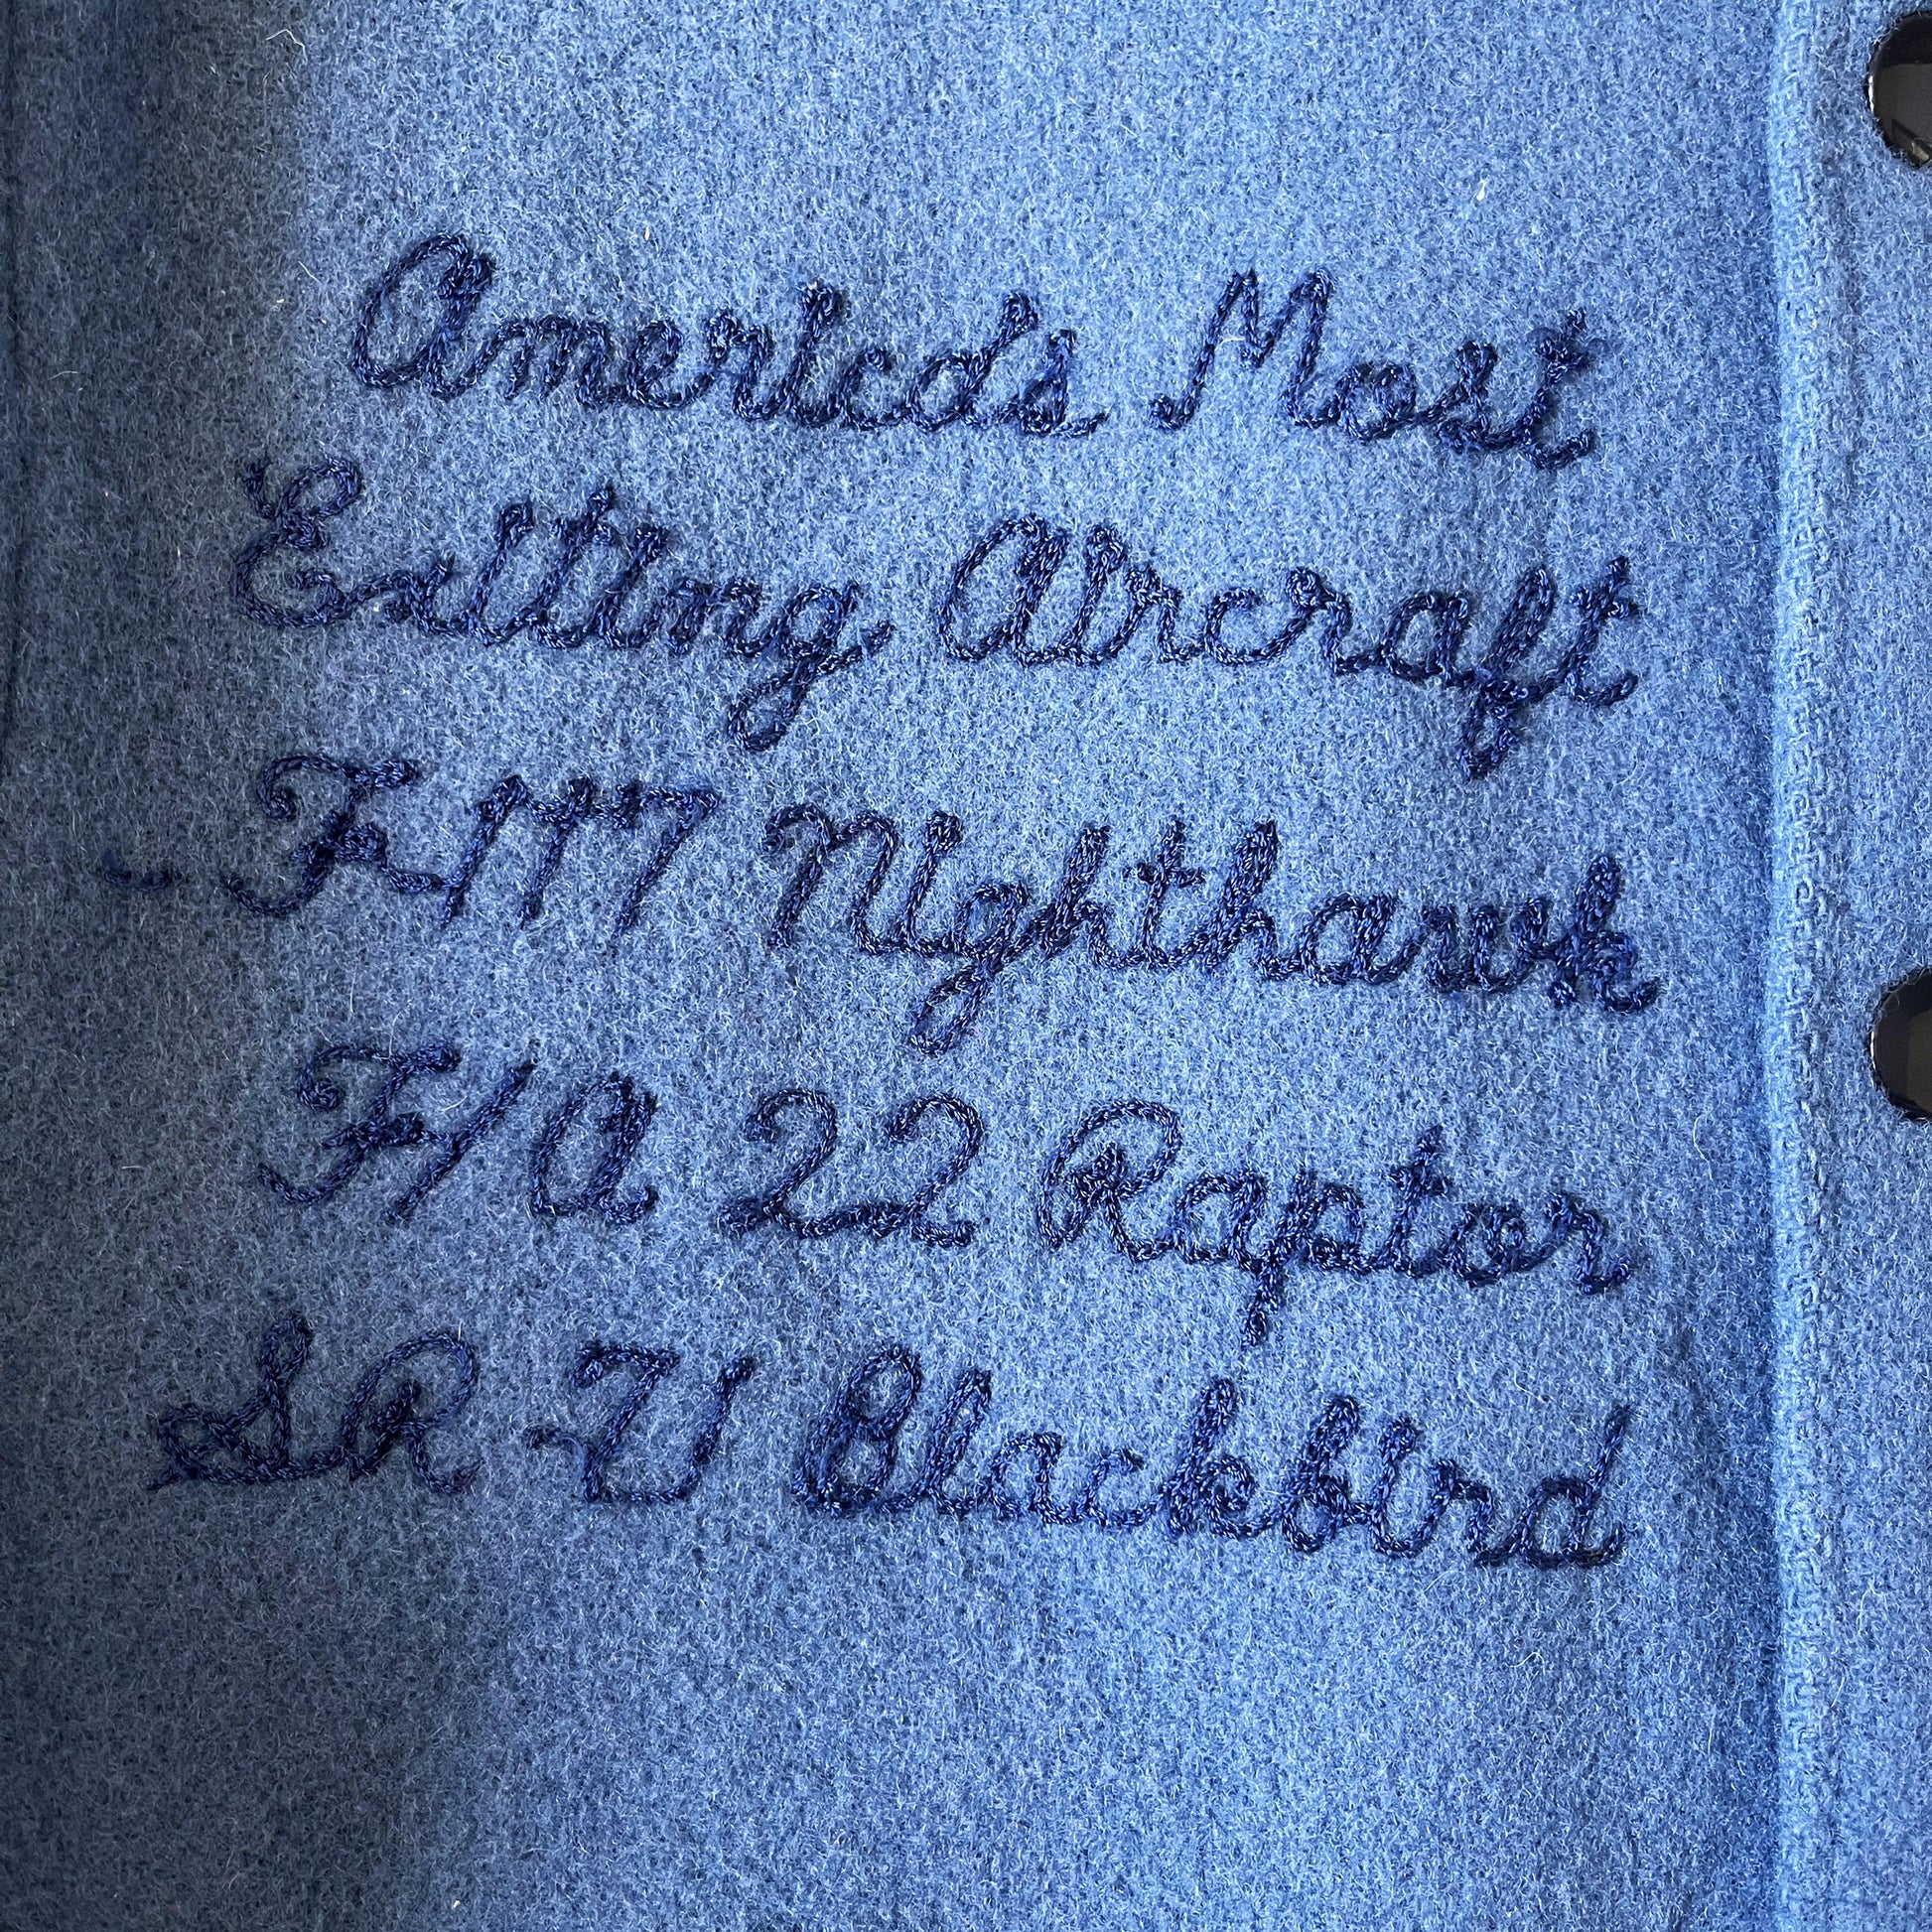 America's Most
Exiting Aircraft
- F-117 Nighthawk
F/A 22 Raptor
SR 71 Blackbird